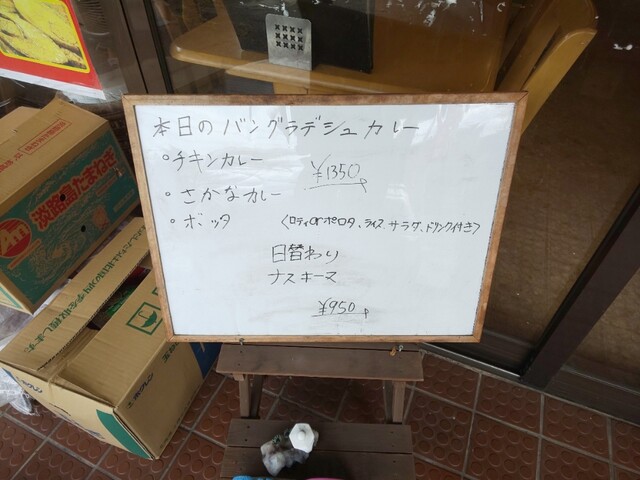 本日のバングラデシュカレー
・チキンカレー
¥1350
・さかなカレー
・ボッタ
<ロティorポロタ、ライス、サラダ、ドリンク付き>
日替わり
ナスキーマ
¥950
淡路島たまねぎ